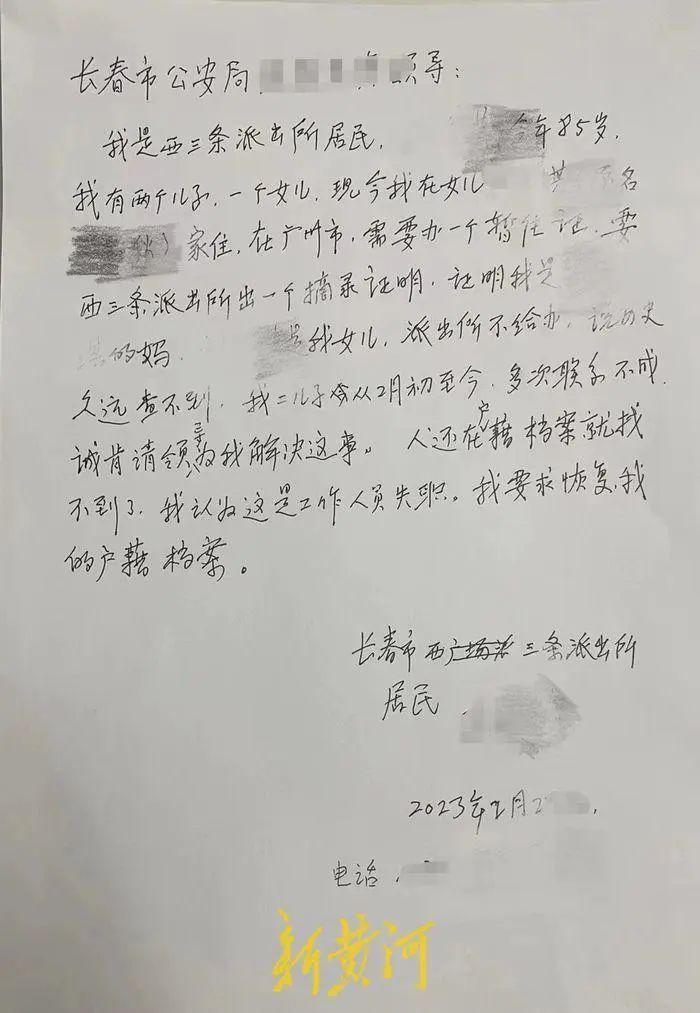 长春市公安局 领导：
我是西三条派出所居民， 今年85岁，
我有两个儿子，一个女儿，现今我在女儿 名
家住，在广州市，需要办一个暂住证，要
西三条派出所出一个摘录证明，证明我是
的妈， 是我女儿，派出所不给办，说历史
久远查不到，我二儿子 从2月初至今，多次联系不成，
诚肯请领导为我解决这事。人还在户藉档案就找
不到了，我认为这是工作人员失职。我要求恢复我
的户藉档案。
长春市西广场派三条派出所
居民
2023年2月2
电话，
新黄河